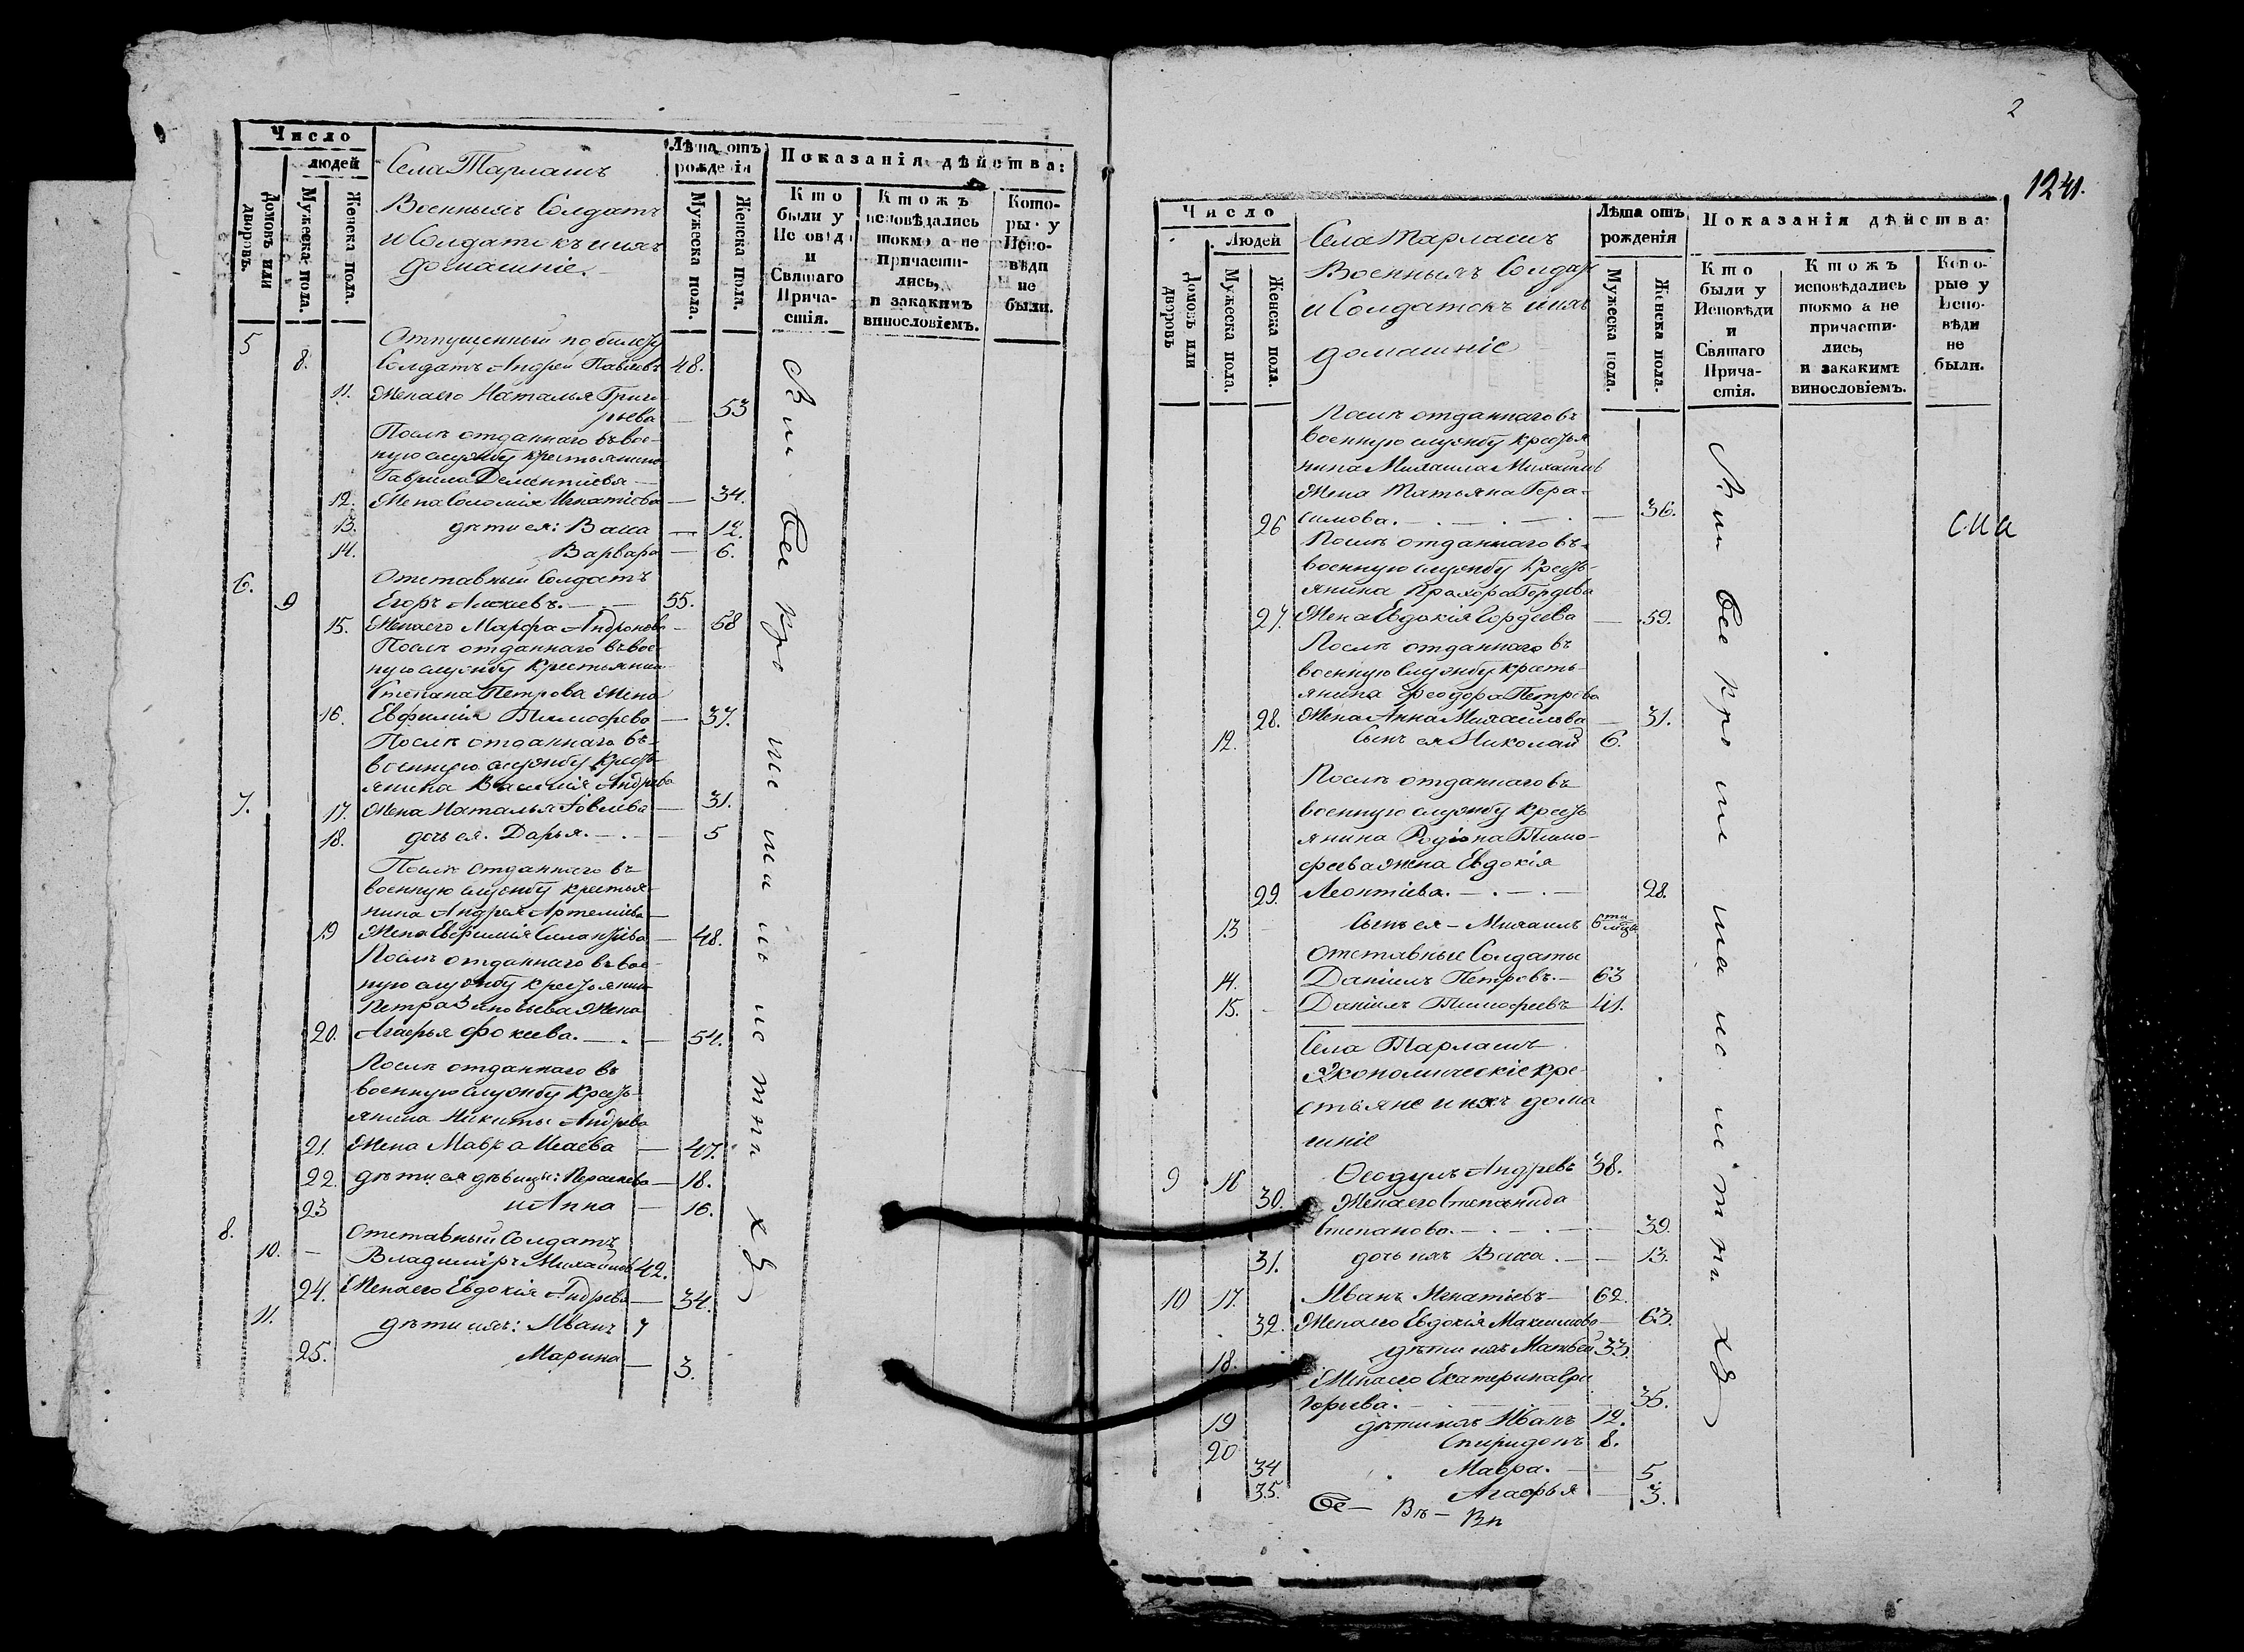 Число
людей
Домовъ или дворовъ.
Мужеска пола.
Женска пола.
Села Тарлашъ
Военныхъ Солдатъ
и Солдатокъ и ихъ
домашніе.
Лѣта отъ рожденія
Мужеска пола.
Женска пола.
Показанія дѣйства:
Кто были у Исповѣди и Святаго Причастія.
Ктожъ исповѣдались токмо а не причастились, и закакимъ винословіемъ.
Которые у Исповѣди не были.
5 Отпущенный по билету
8. Солдатъ Андрей Павловъ 48.
11. Жена его Наталья Григо
рьева — 53
Послѣ отданнаго въ вое-
ную службу крестьянина
Гаврила Дементіева —
12. Жена Соломія Игнатіева — 34.
13. дѣти ея: Васса — 12.
14. Варвара — 6.
6. Отставный Солдатъ
9 Егоръ Алексѣевъ. — 55.
15. Жена его Марфа Андронова — 58
Послѣ отданнаго въ вое-
ную службу крестьянина
Степана Петрова Жена
16. Евфимія Тимофеева — 37.
Послѣ отданнаго въ
военную службу кресть-
янина Василія Андреева
7. 17. Жена Наталья Іовлева — 31.
18. дочь ея. Дарья. — 5
Послѣ отданнаго въ
военную службу крестья-
нина Андрея Артеміева —
19 Жена Евфимія Силантіева — 48.
Послѣ отданнаго въ вое-
ную службу крестьянина
Петра Зиновьева Жена
20. Агафья Фокеева. — 54.
Послѣ отданнаго въ
военную службу кресть-
янина Никиты Андреева
21. Жена Мавра Исаева — 47.
22. дѣти ея дѣвицы: Парасковья — 18.
23 и Анна — 16.
8. Отставный Солдатъ
10. — Владиміръ Михайловъ 42.
24. Жена его Евдокія Андреева — 34.
11. дѣти ихъ: Иванъ 7
25. Марина — 3.
2
1241.
Число
Людей
Домовъ или дворовъ
Мужеска пола.
Женска пола.
Села Тарлашъ
Военныхъ Солдат
и Солдатокъ и ихъ
домашніе
Лѣта отъ рожденія
Мужеска пола.
Женска пола.
Показанія дѣйства:
Кто были у Исповѣди и Святаго Причастія.
Ктожъ исповѣдались токмо а не причастились, и закакимъ винословіемъ.
Которые у Исповѣди не были.
Послѣ отданнаго въ
военную службу крестья
нина Михаила Михайлов
Жена Татьяна Гера-
26 симова. — 36.
Послѣ отданнаго въ
военную службу кресть-
янина Прохора Гордеева
27. Жена Евдокія Гордеева — 59.
Послѣ отданнаго въ
военную службу кресть-
янина Феодора Петрова
28. Жена Анна Михаилова — 31.
12. Сынъ ея Николай 6.
Послѣ отданнаго въ
военную службу кресть
янина Родіона Тимо-
феева жена Евдокія
29. Леонтіева. — 28.
13 Сынъ ея — Михаилъ 6ти
Отставные Солдаты
14. Даніилъ Петровъ. — 63
15. Даніилъ Тимофеевъ 41.
Села Тарлашъ
Экономическіе кре-
стьяне и ихъ дома
шніе
9 16 Феодулъ Андреевъ 38.
30. Жена его Степанида
Степанова. — 39.
31. дочь ихъ Васса. — 13.
10 17. Иванъ Игнатіевъ — 62.
32. Жена его Евдокія Максимова — 63.
18. дѣти ихъ Матвей 33.
Жена его Екатерина Гри
горьева. — 35.
19 дѣти ихъ Иванъ 12.
20 Спиридонъ 8.
34 Мавра. — 5.
35. Агафья — 3.